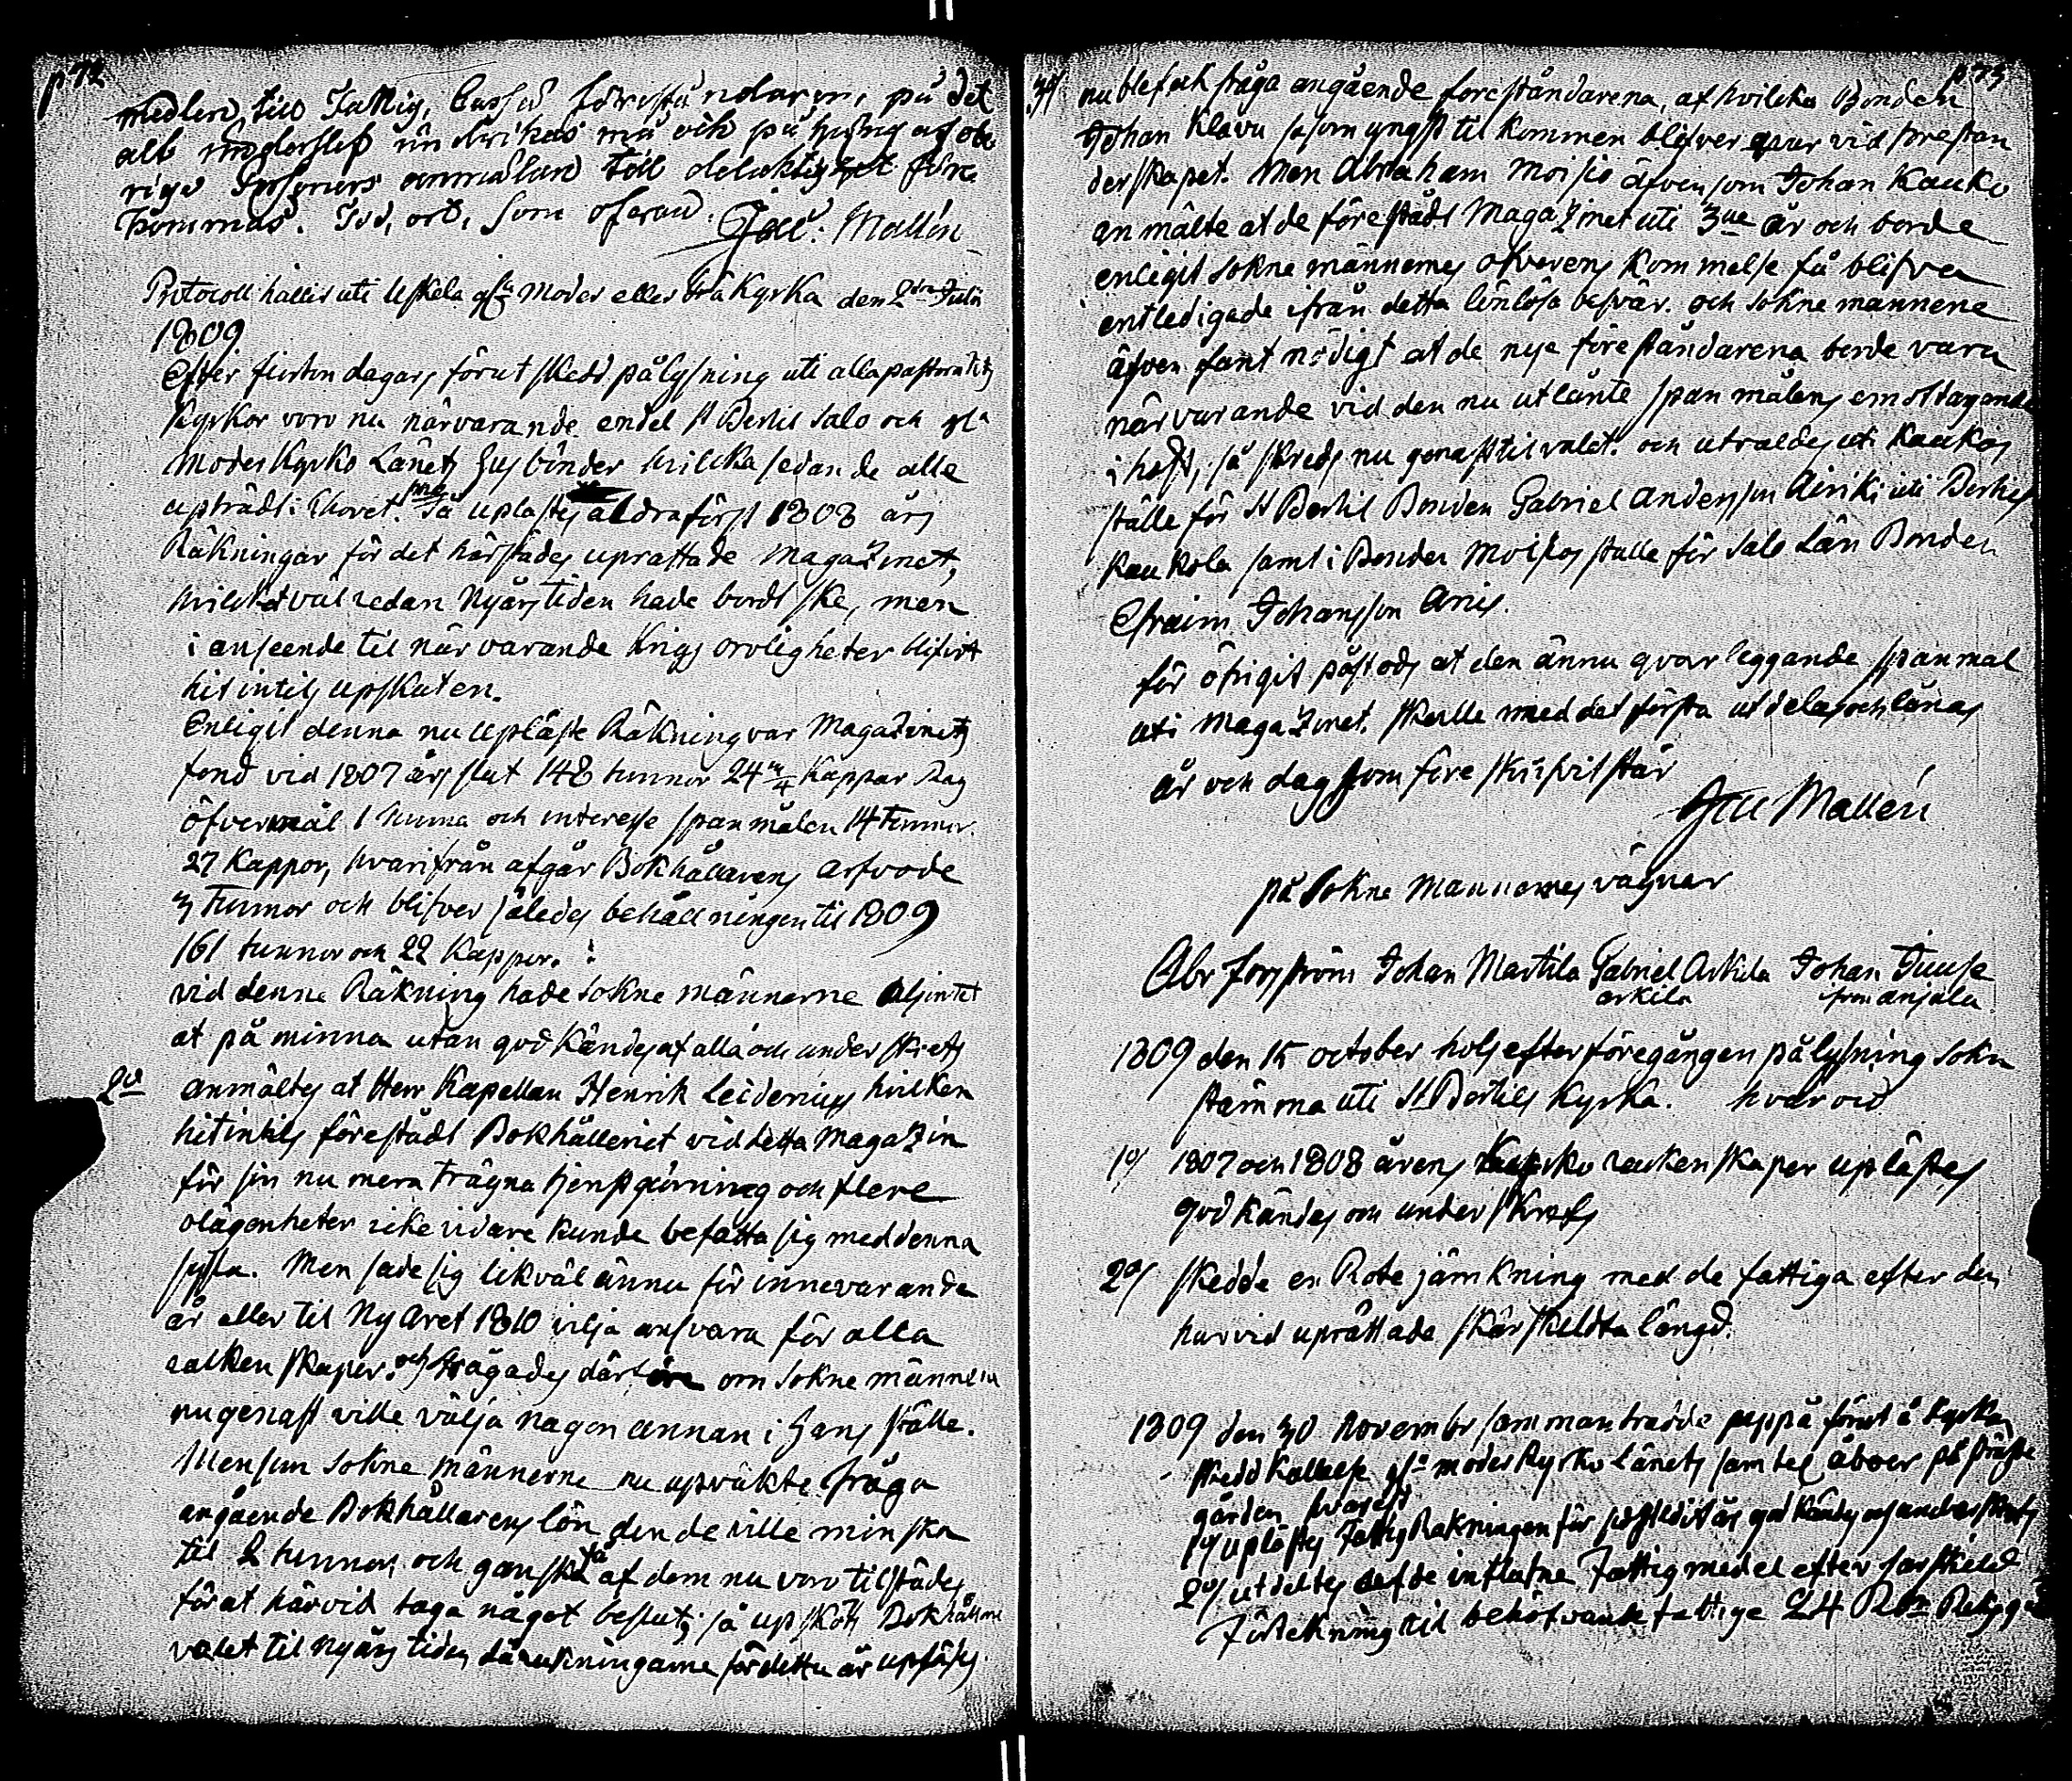 p 72
medlen til Fattig Cassa föreståndaren, på det
alt underslef undvikas må och på hvars af obe
rige Personers anmälan till delaktighet före
kommas. Iud, ort, som ofvan. Jac: Mallén
Protocoll hållit uti Uskela gla Moder eller Grå Kyrka den 2dra Julii
1809
Efter fiorton dagars förut skedd pålysning uti alla pastoratets
kyrkor voro nu närvarande endel St Bertils Salo och gla
Moder Kyrko Länets Husbönder hvilcka sedan de alle
upträdt i Choret
1mo Så uplästes aldraförst 1808 års
Räkningar för det härstädes uprättade Magazinet,
hvilcket väl redan Nyårs tiden hade bordt ske, men
i anseende til närvarande Krigs oroligheter blifvit
hit intils upskuten.
Enligit denna nu upläste Räkning var Magazinets
fond vid 1807 års slut 148 tunnor 24 Kappar Råg
öfvermål 1 tunna och interesse spanmålen 14 Tunnor
27 Kappor, hvarifrån afgår Bokhållarens arfvode
3 Tunnor och blifver således behållningen til 1809
161 tunnor och 22 Kappor.
vid denna Räkning hade sokne männerne alsintet
at påminna utan godkändes af alla och underskrefs
2o anmältes at Herr Kapellan Henrik Leidenius hvilken
hitintils förestådt Bokhålleriet vid detta Magazin
för sin nu mera trägna tjenstgiörning och flere
olägenheter icke vidare kunde befatta sig med denna
sysla. Men sade sig likväl ännu för innevarande
år eller til Ny Året 1810 vilja ansvara för alla
räkenskaper. och frågades därföre om sokne männerne
nu genast ville välja någon annan i Hans ställe.
Men som sokne männerne nu upväkte fråga
angående Bokhållarens lön den de ville minska
til 2 tunnor, och ganska få af dem nu voro tilstädes
för at härvid taga något beslut; så upsköts Bokhållare
valet til nyårs tiden då räkningarne för detta år upläses.
p 73
3o/ nu blef ock fråga angående föreståndarena, af hvilcka Bonden
Johan Klavu såsom yngst til kommen blifver qvar vid förestån
derskapet. Men Abraham Moisio äfvensom Johan Kauko
anmälte at de förestådt Magazinet uti 3ne år och borde
enligit sokne männernes öfverens kommelse få blifva
entledigade ifrån detta lönlösa besvär. och sokne männene
äfven fant nödigt at de nya föreståndarena borde vara
närvarande vid den nu utlånte spanmålens emottagande
i höst, så skreds nu genast til valet. och utvaldes uti Kaukos
ställe för St Bertil Bonden Gabriel Andersson Airiki uti Bertils
Kaukola samt i Bonden Moisios ställe för Salo Län Bonden
Efraim Johansson Anis.
för öfrigit påstods at den ännu qvar leggande spanmål
uti Magazinet skulle med det första utdelas och lånas
år och dag som föreskrifvit står
Jac Mallén
på Sokne Mannernes vägnar
Abr Forsström Johan Martila Gabriel Arkila Johan Juusa
arkila från anjala
1809 den 15 october hols efter föregången pålysning sokn
stämma uti St Bertils Kyrka. hvarvid
1o/ 1807 och 1808 årens Kyrko räkenskaper uplästes
godkändes och underskrefs
2o/ skedde en Rote jämkning med de fattiga efter den
harvid uprättade särskildta längd.
1809 den 30 Novembr sammanträdde uppå förut å kyrkan
skedd kallelse gla moder Kyrko länets samtel. åboer på präste
gården hvarest
1o/ uplästes Fattig Räkningen för sistledit år godkändes och underskrefs
2o/ utdeltes af de influtne Fattig medel efter särskild
Förtekning til behöfvande fattige 24 Rdr Riksg